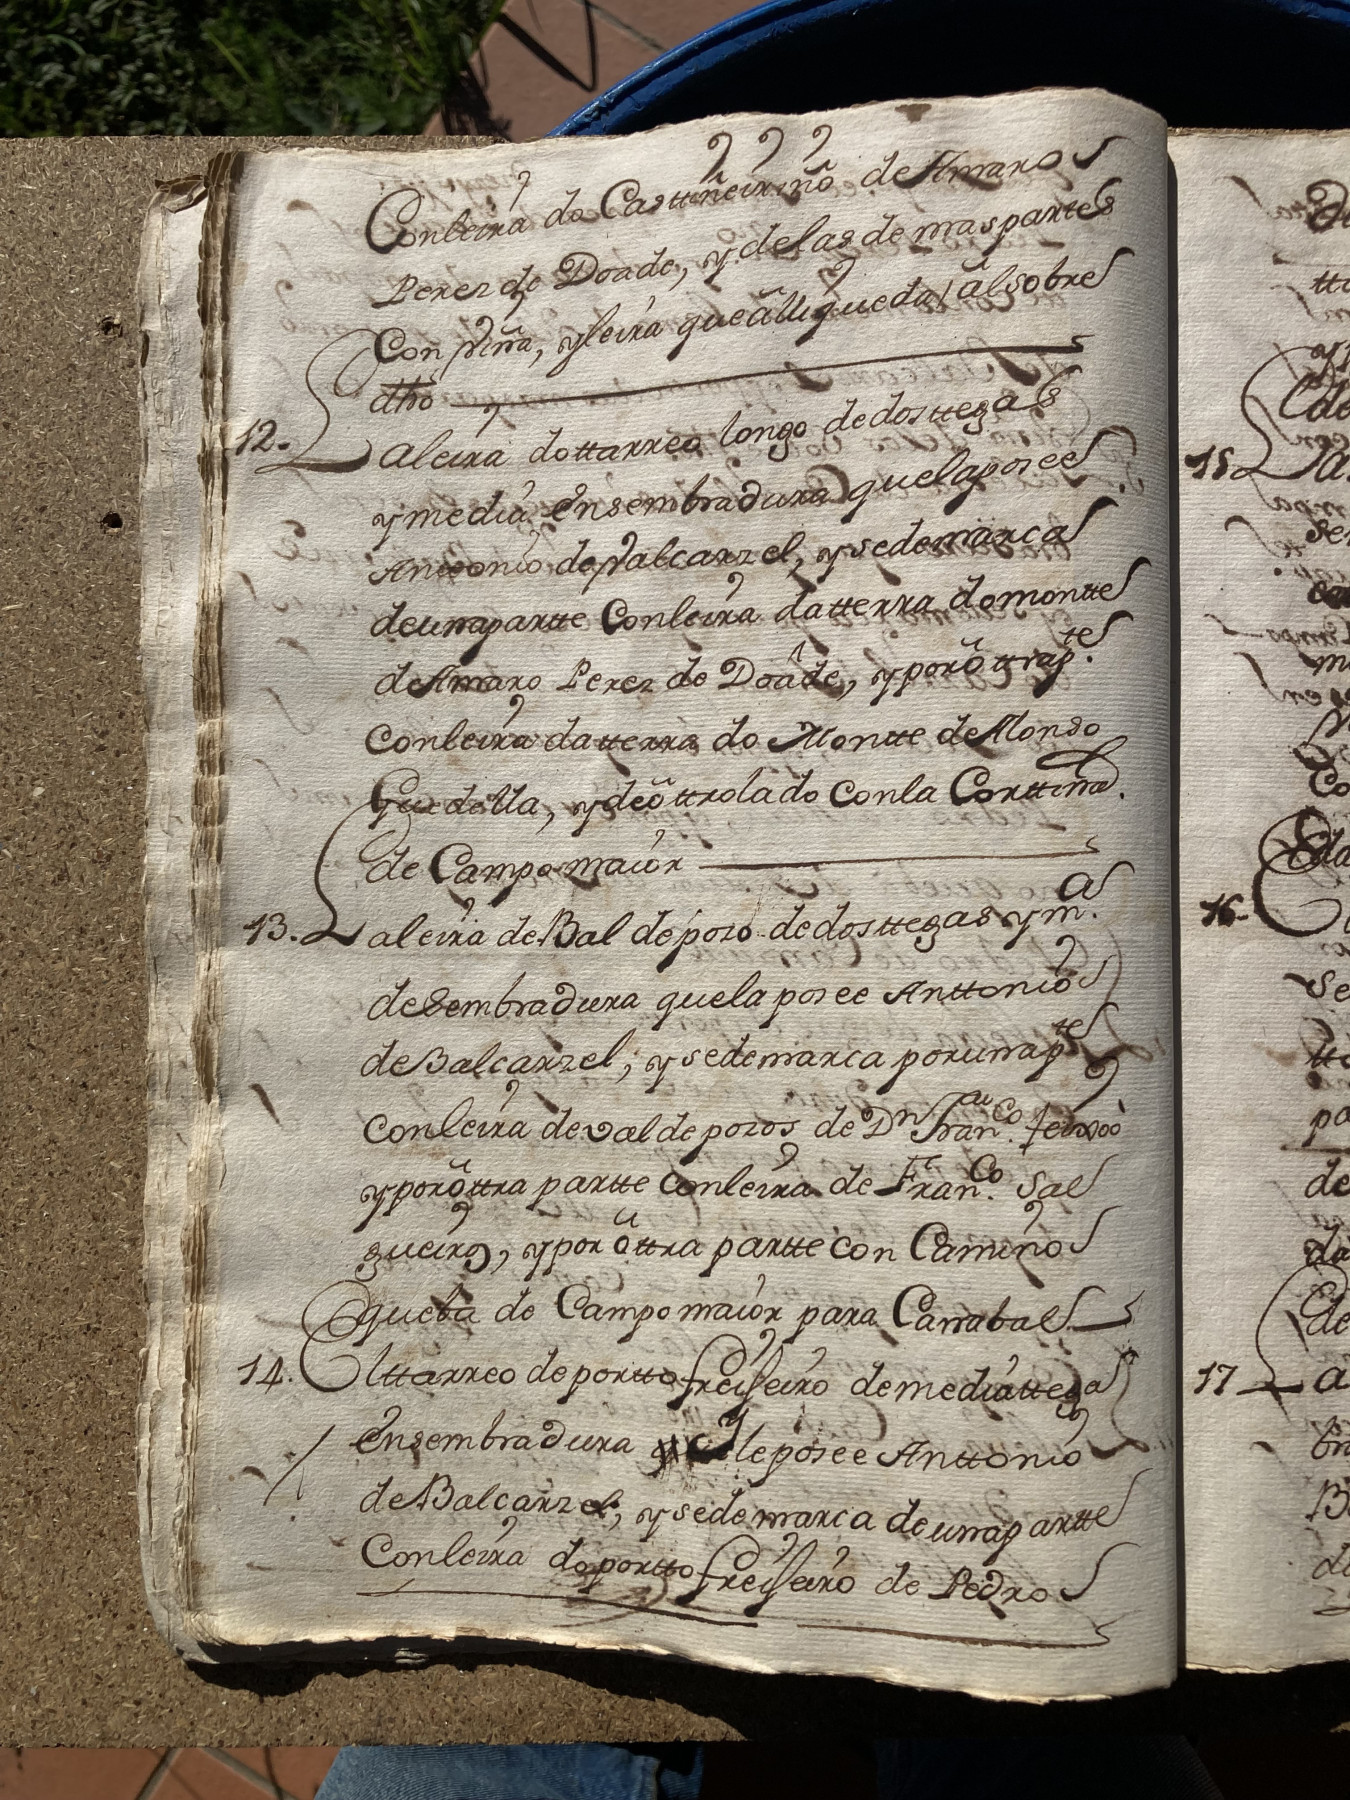 Conleira do Casttiñeiriño de Amaro
Perez de Doade, y delas demas parttes
Con viña, y leira que alli queda, al sobre
dho
12. La leira do ttarreo longo de dos ttegas
y media ensembradura que la posee
Anttonio de Valcarzel, y se demarca
de una partte Conleira da tterra do montte
de Amaro Perez de Doade, y por ottra pte.
Conleira da tterra do Montte de Alonso
Guedella, y de ottro lado con la Corttina
de Campo maior
13. La leira de Bal de pozo de dos ttegas y ma.
de sembradura que la posee Anttonio
de Balcarzel; y se demarca por una pte
Conleira de val de pozos de Dn Franco. feixoò
y por ottra partte conleira de Franco. Sal
gueiro, y por ottra partte con Camino
que ba de Campo maior para Canabal
14. El ttarreo de portto freiseiro de media ttega
ensembradura q le posee Anttonio
de Balcarzel; y se demarca de una partte
Conleira do portto freiseiro de Pedro
Da
tta
y p
de
15 La
se
ca
ma
Co
16.
Se
tta
pa
de
da
de
17 La
bra
Ba
do